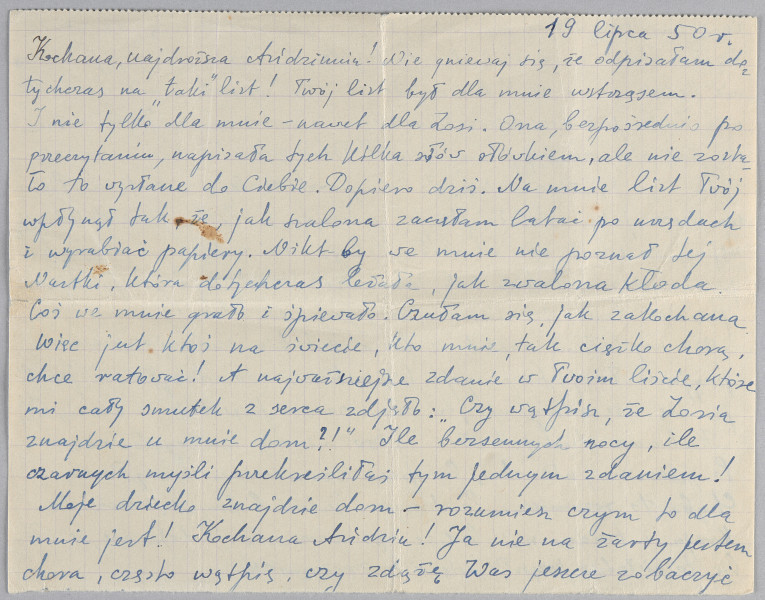 19 lipca 50 r.
Kochana, najdroższa Andziuniu! Nie gniewaj się, że odpisałam do
tychczas na "taki" list! Twój list był dla mnie wstrząsem.
I nie tylko dla mnie – nawet dla Zosi. Ona, bezpośrednio po
przeczytaniu, napisała tych kilka słów ołówkiem, ale nie zosta
ło to wysłane do Ciebie. Dopiero dziś. Na mnie list Twój
wpłynął tak że, jak szalona zaczęłam latać po urzędach
i wyrabiać papiery. Nikt by we mnie nie poznał tej
Nastki, która dotychczas leżała, jak zwalona kłoda.
Coś we mnie grało i śpiewało. Czułam się, jak zakochana.
Więc jest ktoś na świecie, kto mnie, tak ciężko chorą,
chce ratować! A najważniejsze zdanie w Twoim liście, które
mi cały smutek z serca zdjęło: "Czy wątpisz, że Zosia
znajdzie u mnie dom?!" Ile bezsennych nocy, ile
czarnych myśli przekreśliłaś tym jednym zdaniem!
Moje dziecko znajdzie dom – rozumiesz czym to dla
mnie jest! Kochana Andziu! Ja nie na żarty jestem
chora, często wątpię, czy zdążę Was jeszcze zobaczyć